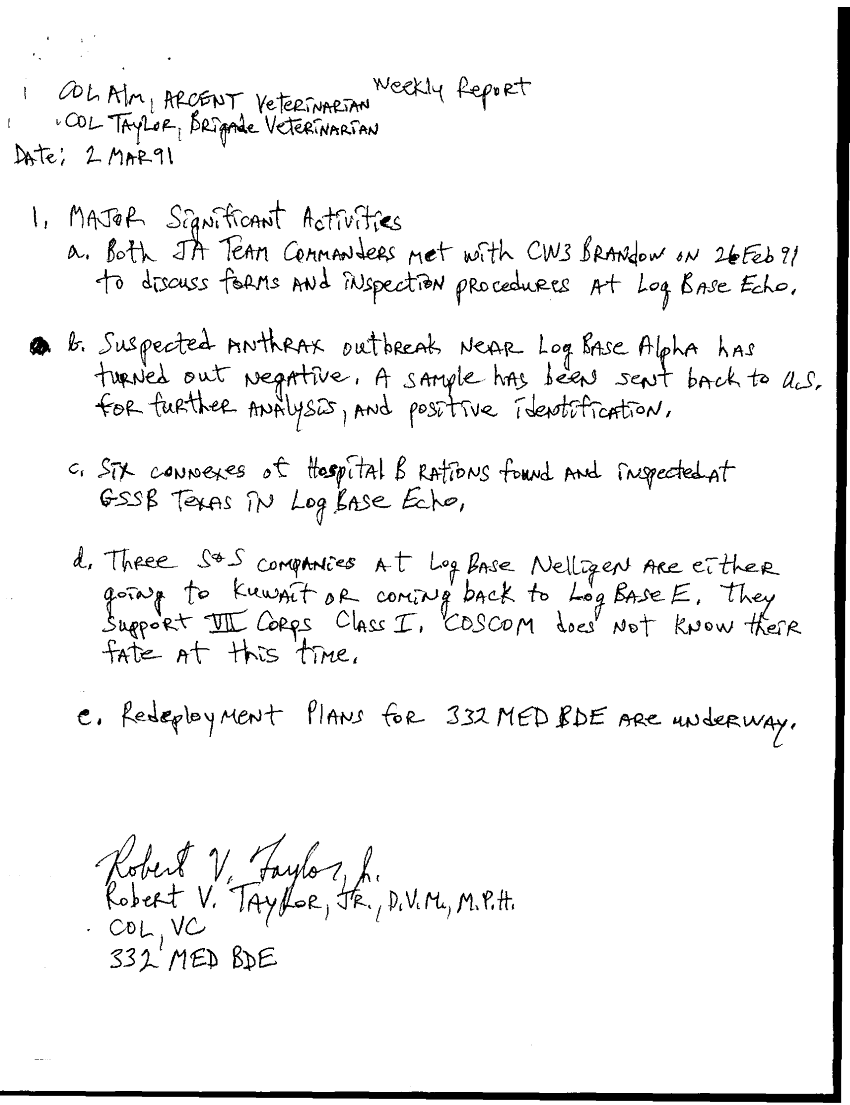 Weekly Report
COL Alm, ARCENT Veterinarian
COL Taylor, Brigade Veterinarian
Date: 2 MAR 91
1. Major Significant Activities
a. Both JA Team Commanders met with CW3 Brandow on 26 Feb 91
to discuss forms and inspection procedures at Log Base Echo.
b. Suspected Anthrax outbreak near Log Base Alpha has
turned out negative. A sample has been sent back to U.S.
for further analysis, and positive identification.
c. Six connexes of Hospital B Rations found and inspected at
GSSB Texas in Log Base Echo.
d. Three S+S companies at Log Base Nelligen are either
going to Kuwait or coming back to Log Base E. They
support VII Corps Class I. COSCOM does not know their
fate at this time.
e. Redeployment Plans for 332 MED BDE are underway.
Robert V. Taylor, Jr.
Robert V. Taylor, Jr., D.V.M., M.P.H.
COL, VC
332 MED BDE